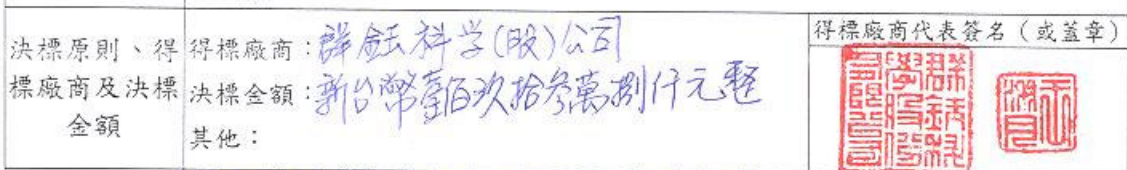 決標原則、得
標廠商及決標
金額
得標廠商:群鈺科学(股)公司
決標金額:新台幣壹佰玖拾參萬捌仟元整
其他:
得標廠商代表簽名(或蓋章)
群鈺科
學股份
有限公司